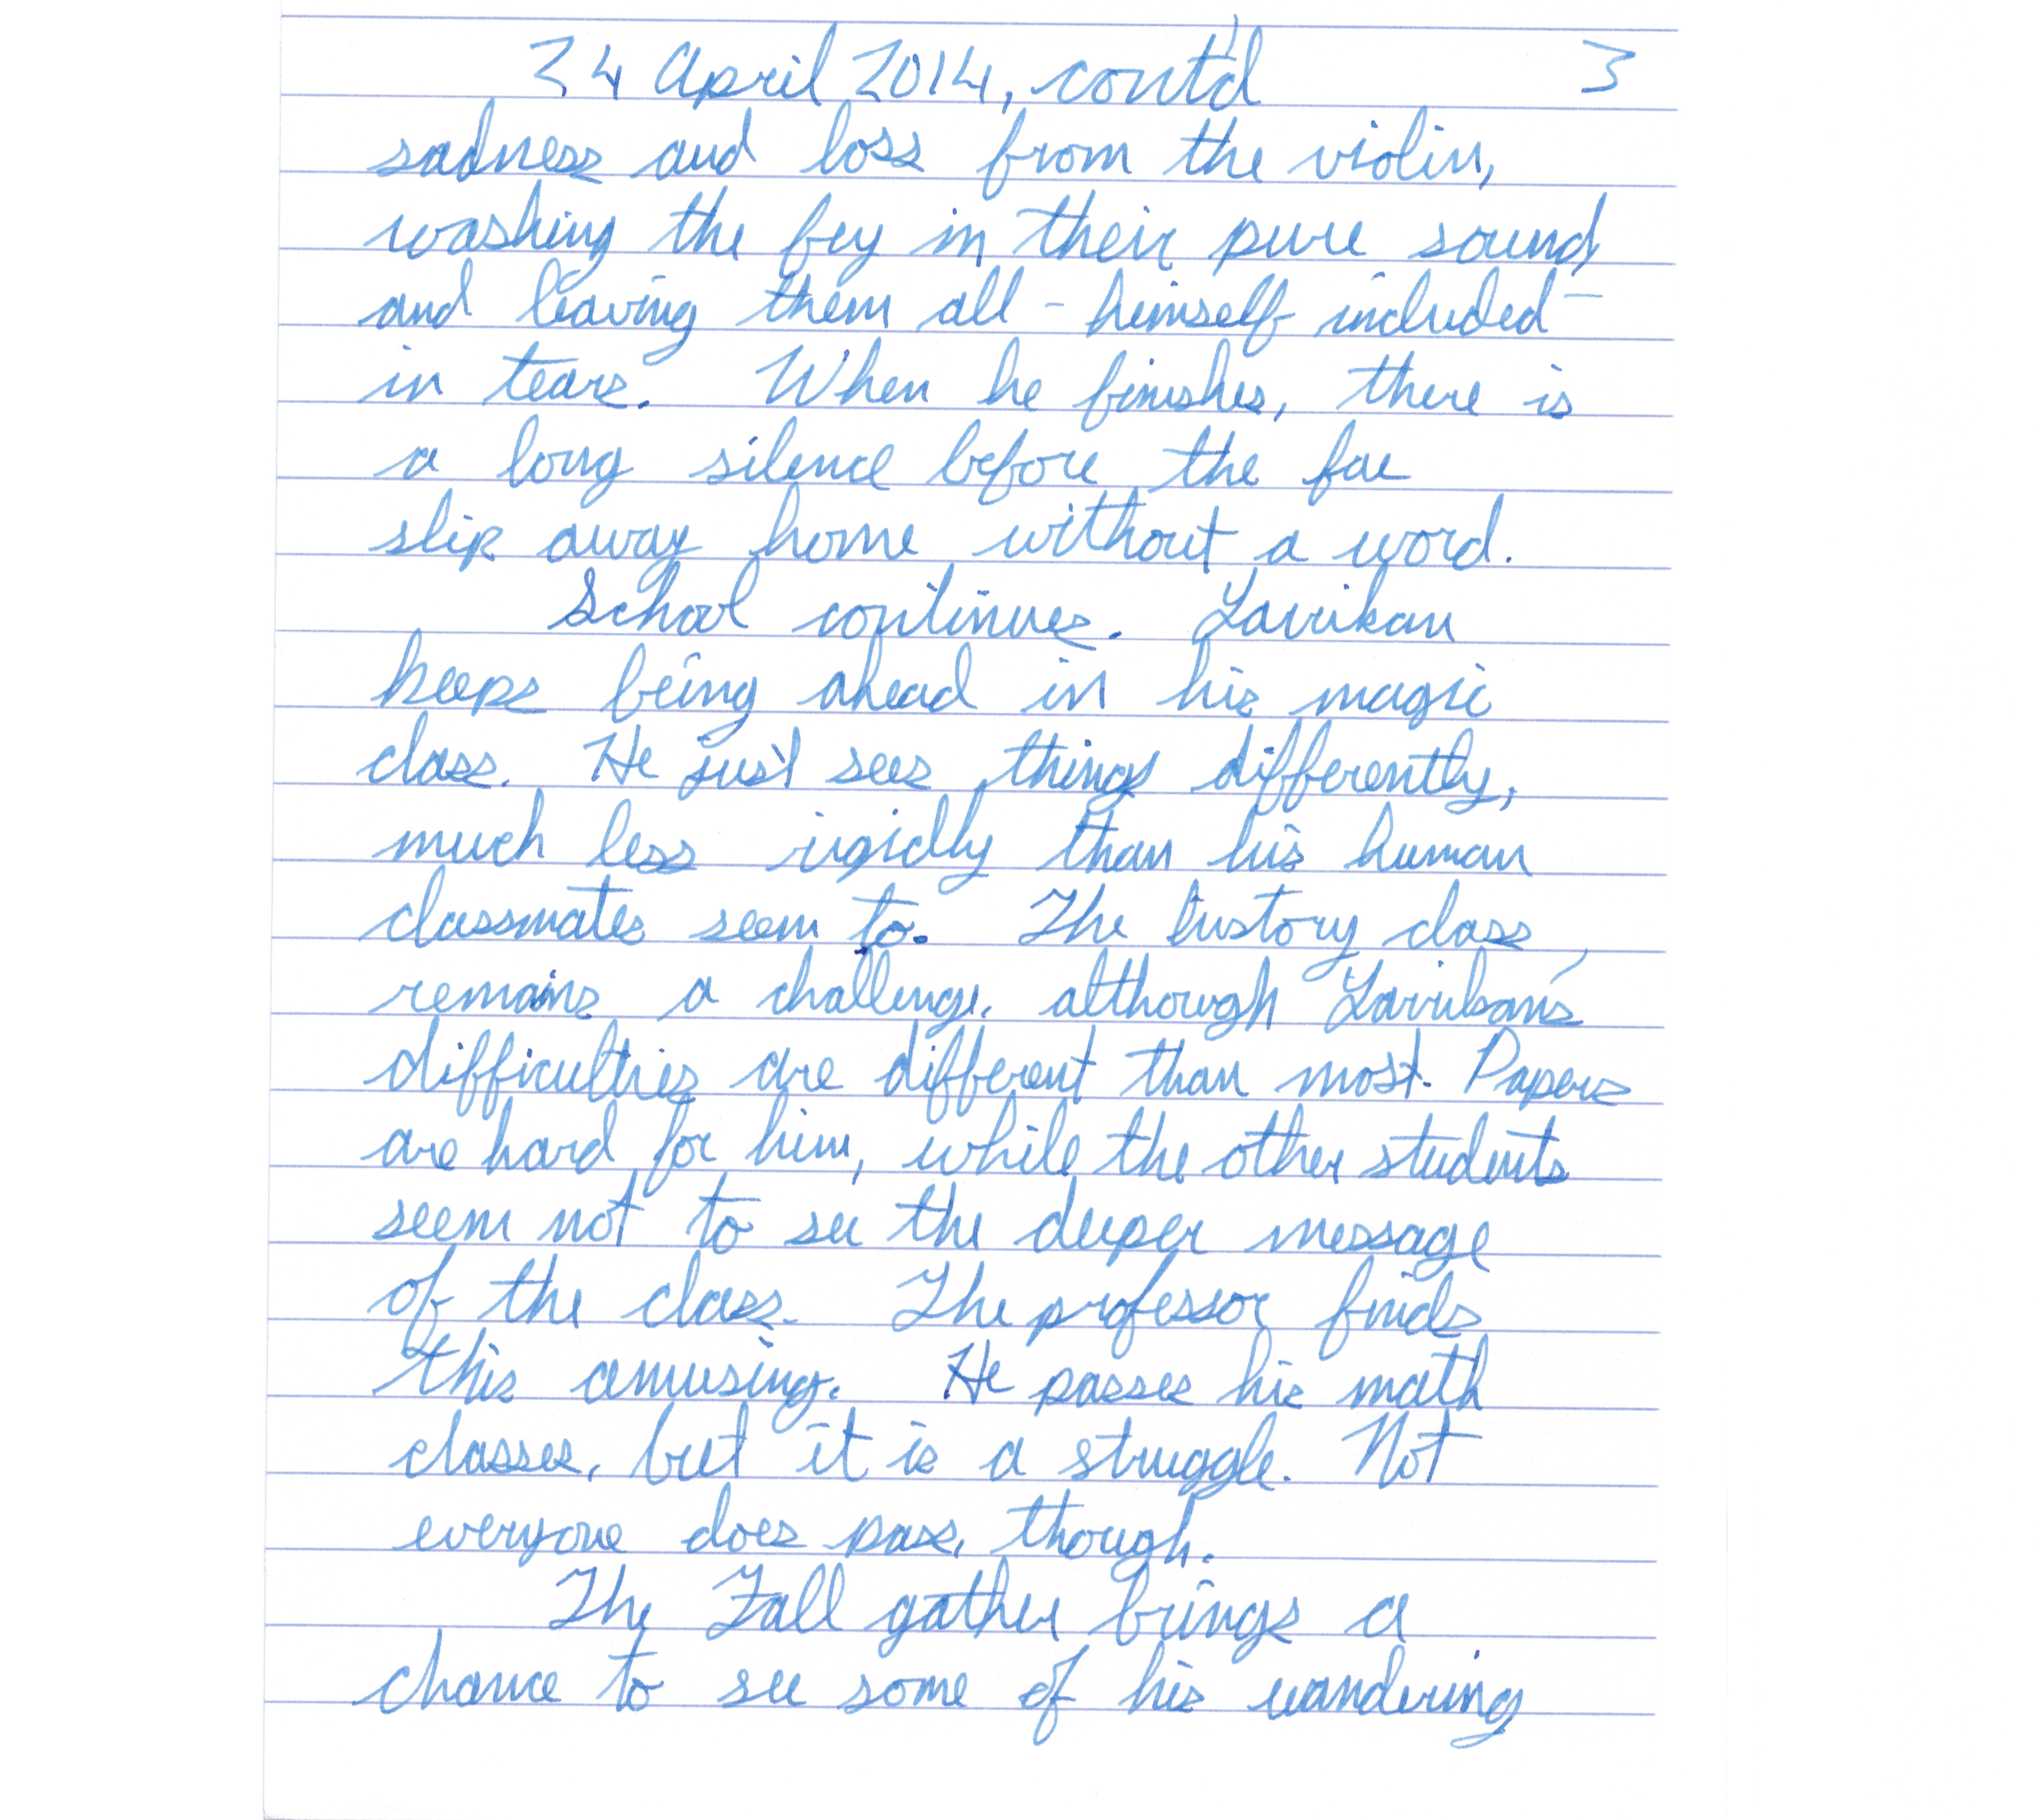 24 April 2014, cont'd 3
sadness and loss from the violin,
washing the fey in their pure sound,
and leaving them all - himself included -
in tears. When he finishes, there is
a long silence before the fae
slip away home without a word.
School continues. Larikan
keeps being ahead in his magic
class. He just sees things differently,
much less rigidly than his human
classmates seem to. The history class
remains a challenge, although Larikan's
difficulties are different than most. Papers
are hard for him, while the other students
seem not to see the deeper message
of the class. The professor finds
this amusing. He passes his math
classes, but it is a struggle. Not
everyone does pass, though.
The Fall gather brings a
chance to see some of his wandering